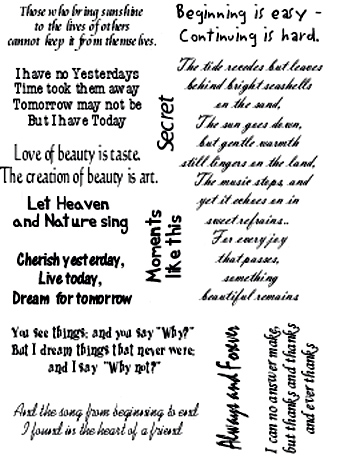 Those who bring sunshine
to the lives of others
cannot keep it from themselves.
I have no Yesterdays
Time took them away
Tomorrow may not be
But I have Today
Love of beauty is taste.
The creation of beauty is art.
Let Heaven
and Nature sing
Cherish yesterday,
Live today,
Dream for tomorrow
You see things; and you say "Why?"
But I dream things that never were;
and I say "Why not?"
And the song from beginning to end
I found in the heart of a friend
Secret
Moments
like this
Beginning is easy -
Continuing is hard.
The tide recedes but leaves
behind bright seashells
on the sand,
The sun goes down,
but gentle warmth
still lingers on the land,
The music stops, and
yet it echoes on in
sweet refrains..
For every joy
that passes,
something
beautiful remains
Always and Forever
I can no answer make,
but thanks and thanks
and ever thanks